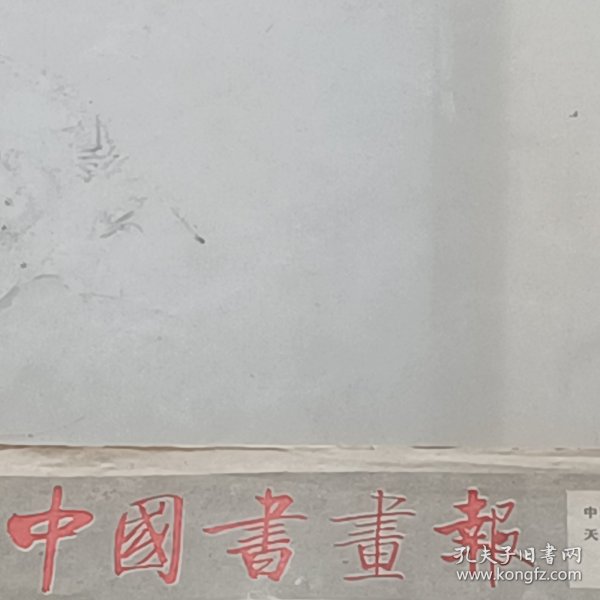 中國書畫報
中
天
孔夫子旧書网
www.kongfz.com